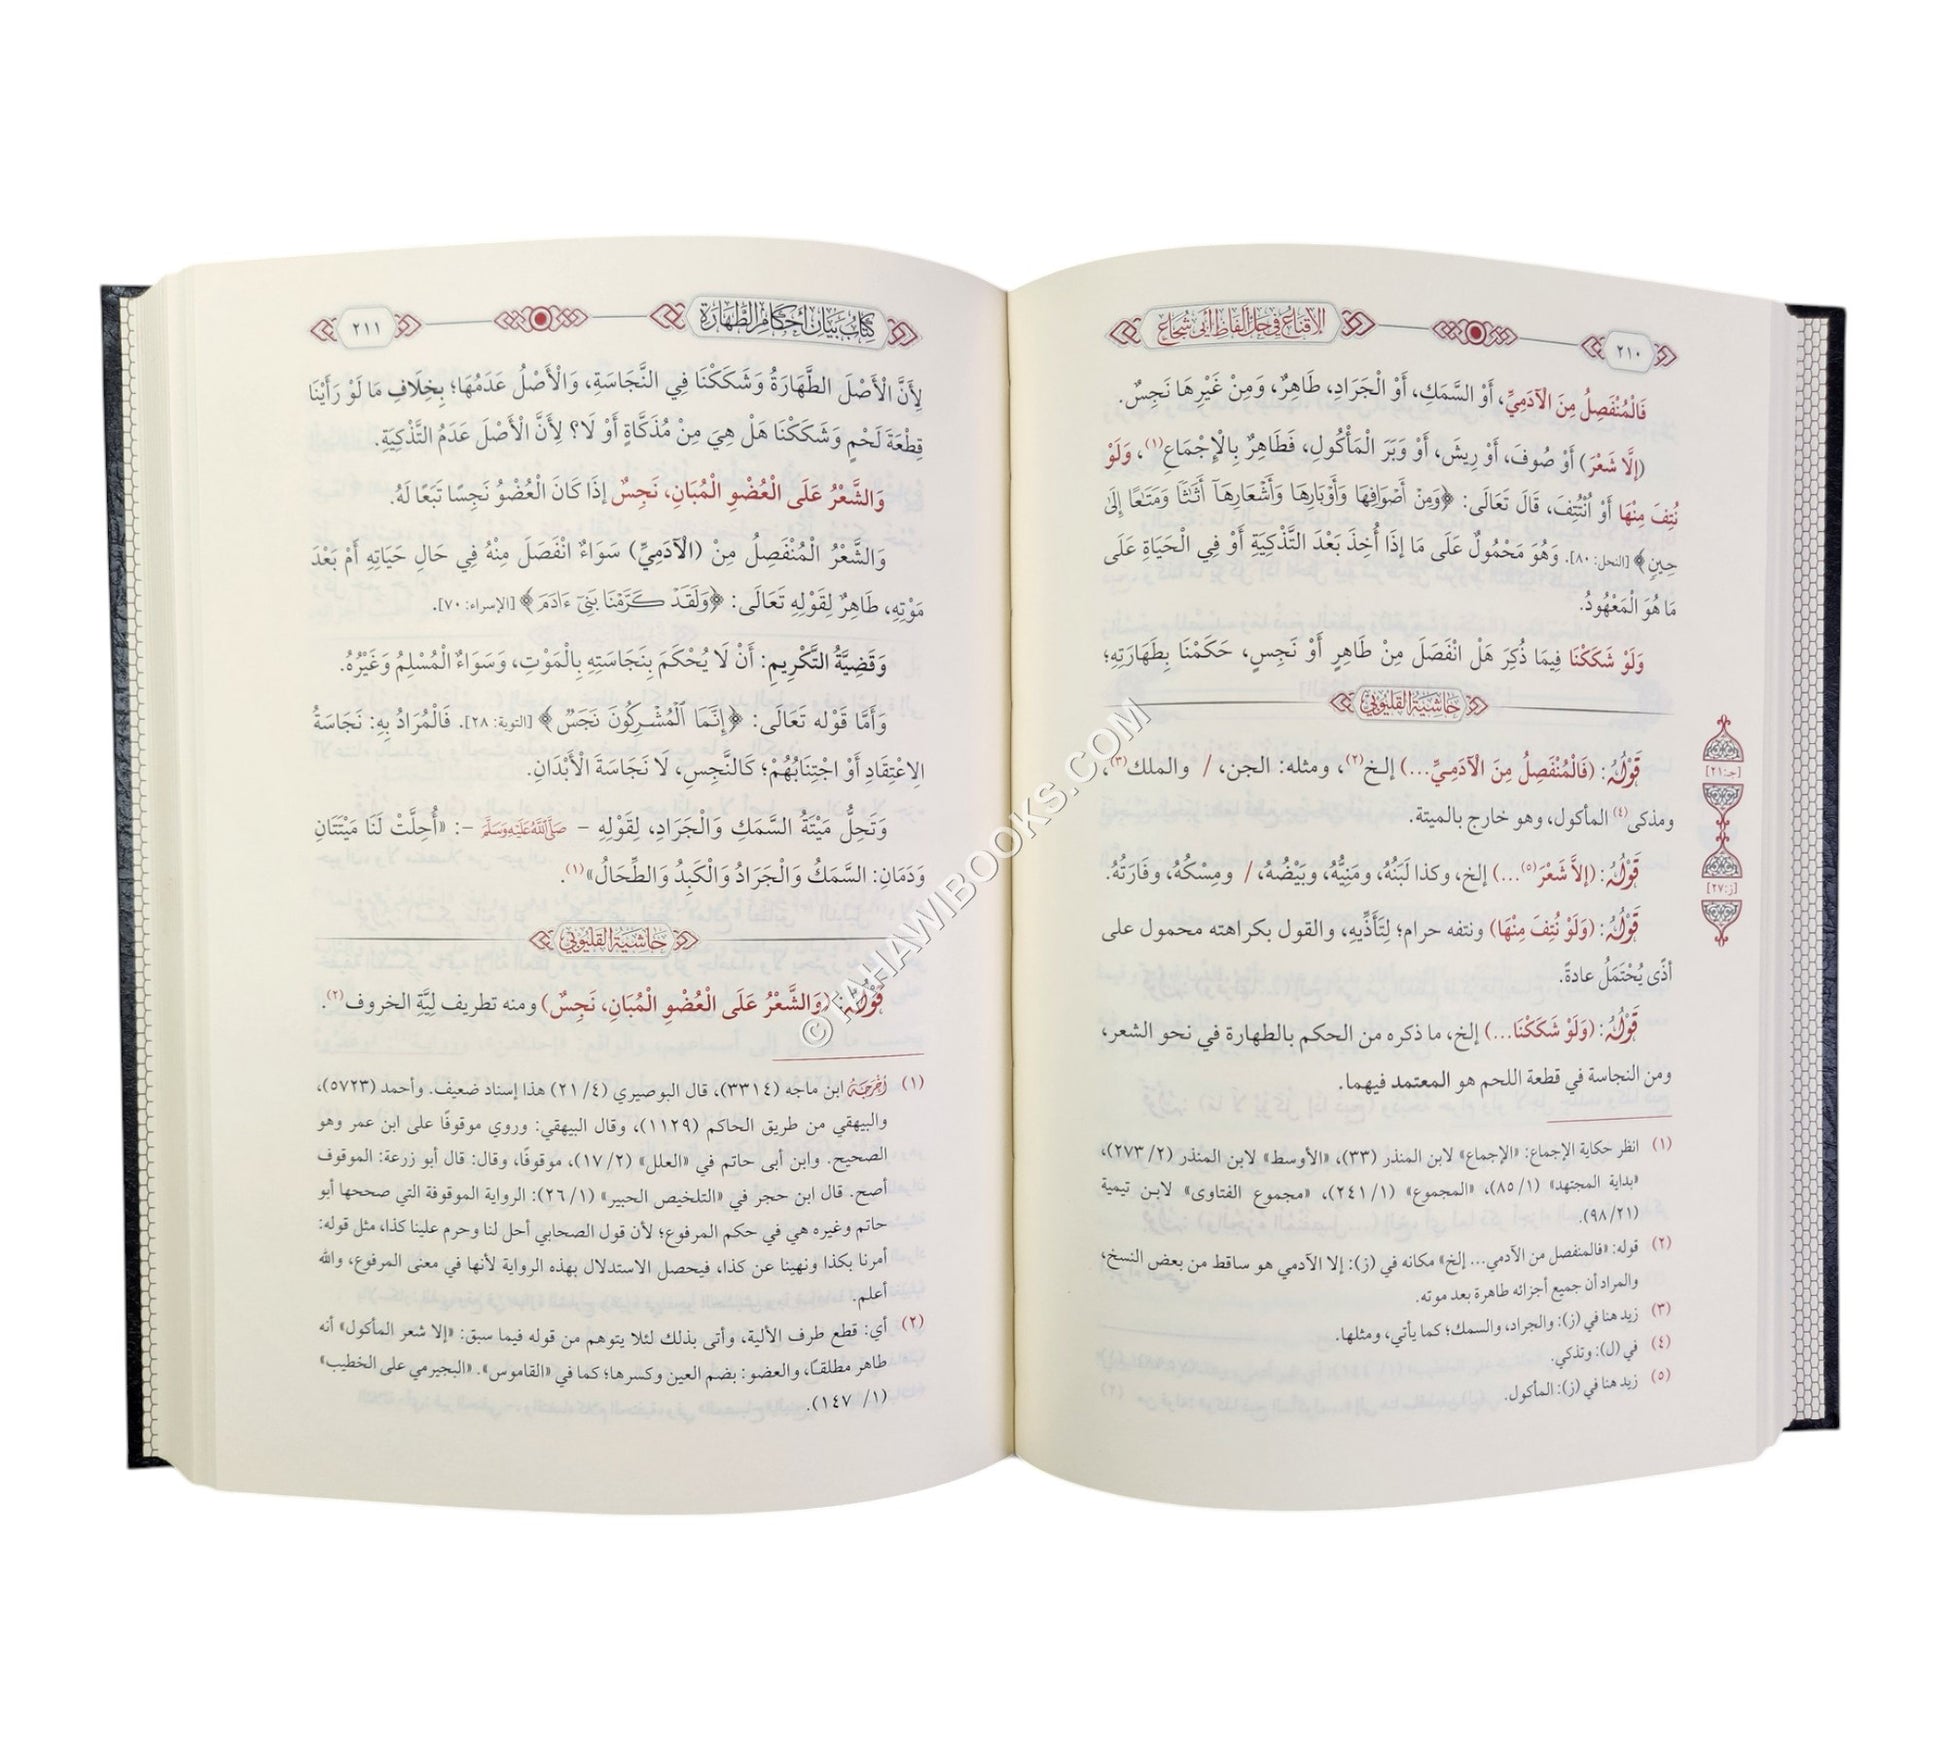 ٢١٠
الإقناع في حل ألفاظ أبي شجاع
فَالْمُنْفَصِلُ مِنَ الْآدَمِيِّ، أَوْ السَّمَكِ، أَوْ الْجَرَادِ، طَاهِرٌ، وَمِنْ غَيْرِهَا نَجِسٌ.
(إلَّا شَعْرَ) أَوْ صُوفَ، أَوْ رِيشَ، أَوْ وَبَرَ الْمَأْكُولِ، فَطَاهِرٌ بِالْإِجْمَاعِ(١)، وَلَوْ
نُتِفَ مِنْهَا أَوْ انْتُتِفَ، قَالَ تَعَالَى: ﴿وَمِنْ أَصْوَافِهَا وَأَوْبَارِهَا وَأَشْعَارِهَآ أَثَٰثًا وَمَتَٰعًا إِلَىٰ
حِينٍ﴾ [النحل: ٨٠]. وَهُوَ مَحْمُولٌ عَلَى مَا إذَا أُخِذَ بَعْدَ التَّذْكِيَةِ أَوْ فِي الْحَيَاةِ عَلَى
مَا هُوَ الْمَعْهُودُ.
وَلَوْ شَكَكْنَا فِيمَا ذُكِرَ هَلْ انْفَصَلَ مِنْ طَاهِرٍ أَوْ نَجِسٍ، حَكَمْنَا بِطَهَارَتِهِ؛
حاشية القليوبي
[جـ:٢١]
[ز:٢٧]
قَوْلُهُ: (فَالْمُنْفَصِلُ مِنَ الْآدَمِيِّ...) إلخ(٢)، ومثله: الجن، / والملك(٣)،
ومذكى(٤) المأكول، وهو خارج بالميتة.
قَوْلُهُ: (إلاَّ شَعْرَ(٥)...) إلخ، وكذا لَبَنُهُ، ومَنِيُّهُ، وبَيْضُهُ، / ومِسْكُهُ، وفَارَتُهُ.
قَوْلُهُ: (وَلَوْ نُتِفَ مِنْهَا) ونتفه حرام؛ لِتَأَذِّيهِ، والقول بكراهته محمول على
أذًى يُحْتَمَلُ عادةً.
قَوْلُهُ: (وَلَوْ شَكَكْنَا...) إلخ، ما ذكره من الحكم بالطهارة في نحو الشعر،
ومن النجاسة في قطعة اللحم هو المعتمد فيهما.
(١) انظر حكاية الإجماع: «الإجماع» لابن المنذر (٣٣)، «الأوسط» لابن المنذر (٢/ ٢٧٣)،
«بداية المجتهد» (١/ ٨٥)، «المجموع» (١/ ٢٤١)، «مجموع الفتاوى» لابن تيمية
(٢١/ ٩٨).
(٢) قوله: «فالمنفصل من الآدمي... إلخ» مكانه في (ز): إلا الآدمي هو ساقط من بعض النسخ،
والمراد أن جميع أجزائه طاهرة بعد موته.
(٣) زيد هنا في (ز): والجراد، والسمك؛ كما يأتي، ومثلها.
(٤) في (ل): وتذكي.
(٥) زيد هنا في (ز): المأكول.
كتاب بيان أحكام الطهارة
٢١١
لِأَنَّ الْأَصْلَ الطَّهَارَةُ وَشَكَكْنَا فِي النَّجَاسَةِ، وَالْأَصْلُ عَدَمُهَا؛ بِخِلَافِ مَا لَوْ رَأَيْنَا
قِطْعَةَ لَحْمٍ وَشَكَكْنَا هَلْ هِيَ مِنْ مُذَكَّاةٍ أَوْ لَا؟ لِأَنَّ الْأَصْلَ عَدَمُ التَّذْكِيَةِ.
وَالشَّعْرُ عَلَى الْعُضْوِ الْمُبَانِ، نَجِسٌ إذَا كَانَ الْعُضْوُ نَجِسًا تَبَعًا لَهُ.
وَالشَّعْرُ الْمُنْفَصِلُ مِنْ (الْآدَمِيِّ) سَوَاءٌ انْفَصَلَ مِنْهُ فِي حَالِ حَيَاتِهِ أَمْ بَعْدَ
مَوْتِهِ، طَاهِرٌ لِقَوْلِهِ تَعَالَى: ﴿وَلَقَدْ كَرَّمْنَا بَنِيٓ ءَادَمَ﴾ [الإسراء: ٧٠].
وَقَضِيَّةُ التَّكْرِيمِ: أَنْ لَا يُحْكَمَ بِنَجَاسَتِهِ بِالْمَوْتِ، وَسَوَاءٌ الْمُسْلِمُ وَغَيْرُهُ.
وَأَمَّا قَوْله تَعَالَى: ﴿إِنَّمَا ٱلْمُشْرِكُونَ نَجَسٌ﴾ [التوبة: ٢٨]. فَالْمُرَادُ بِهِ: نَجَاسَةُ
الِاعْتِقَادِ أَوْ اجْتِنَابُهُمْ؛ كَالنَّجِسِ، لَا نَجَاسَةَ الْأَبْدَانِ.
وَتَحِلُّ مَيْتَةُ السَّمَكِ وَالْجَرَادِ، لِقَوْلِهِ – صَلَّى اللَّهُ عَلَيْهِ وَسَلَّمَ –: «أُحِلَّتْ لَنَا مَيْتَتَانِ
وَدَمَانِ: السَّمَكُ وَالْجَرَادُ وَالْكَبِدُ وَالطِّحَالُ»(١).
حاشية القليوبي
قَوْلُهُ: (وَالشَّعْرُ عَلَى الْعُضْوِ الْمُبَانِ، نَجِسٌ) ومنه تطريف لِيَّةِ الخروف(٢).
(١) أخرجه ابن ماجه (٣٣١٤)، قال البوصيري (٤/ ٢١) هذا إسناد ضعيف. وأحمد (٥٧٢٣)،
والبيهقي من طريق الحاكم (١١٢٩)، وقال البيهقي: وروي موقوفًا على ابن عمر وهو
الصحيح. وابن أبي حاتم في «العلل» (٢/ ١٧)، موقوفًا، وقال: قال أبو زرعة: الموقوف
أصح. قال ابن حجر في «التلخيص الحبير» (١/ ٢٦): الرواية الموقوفة التي صححها أبو
حاتم وغيره هي في حكم المرفوع؛ لأن قول الصحابي أحل لنا وحرم علينا كذا، مثل قوله:
أمرنا بكذا ونهينا عن كذا، فيحصل الاستدلال بهذه الرواية لأنها في معنى المرفوع، والله
أعلم.
(٢) أي: قطع طرف الألية، وأتى بذلك لئلا يتوهم من قوله فيما سبق: «إلا شعر المأكول» أنه
طاهر مطلقًا، والعضو: بضم العين وكسرها؛ كما في «القاموس». «البجيرمي على الخطيب»
(١/ ١٤٧).
© FAHAWIBOOKS.COM